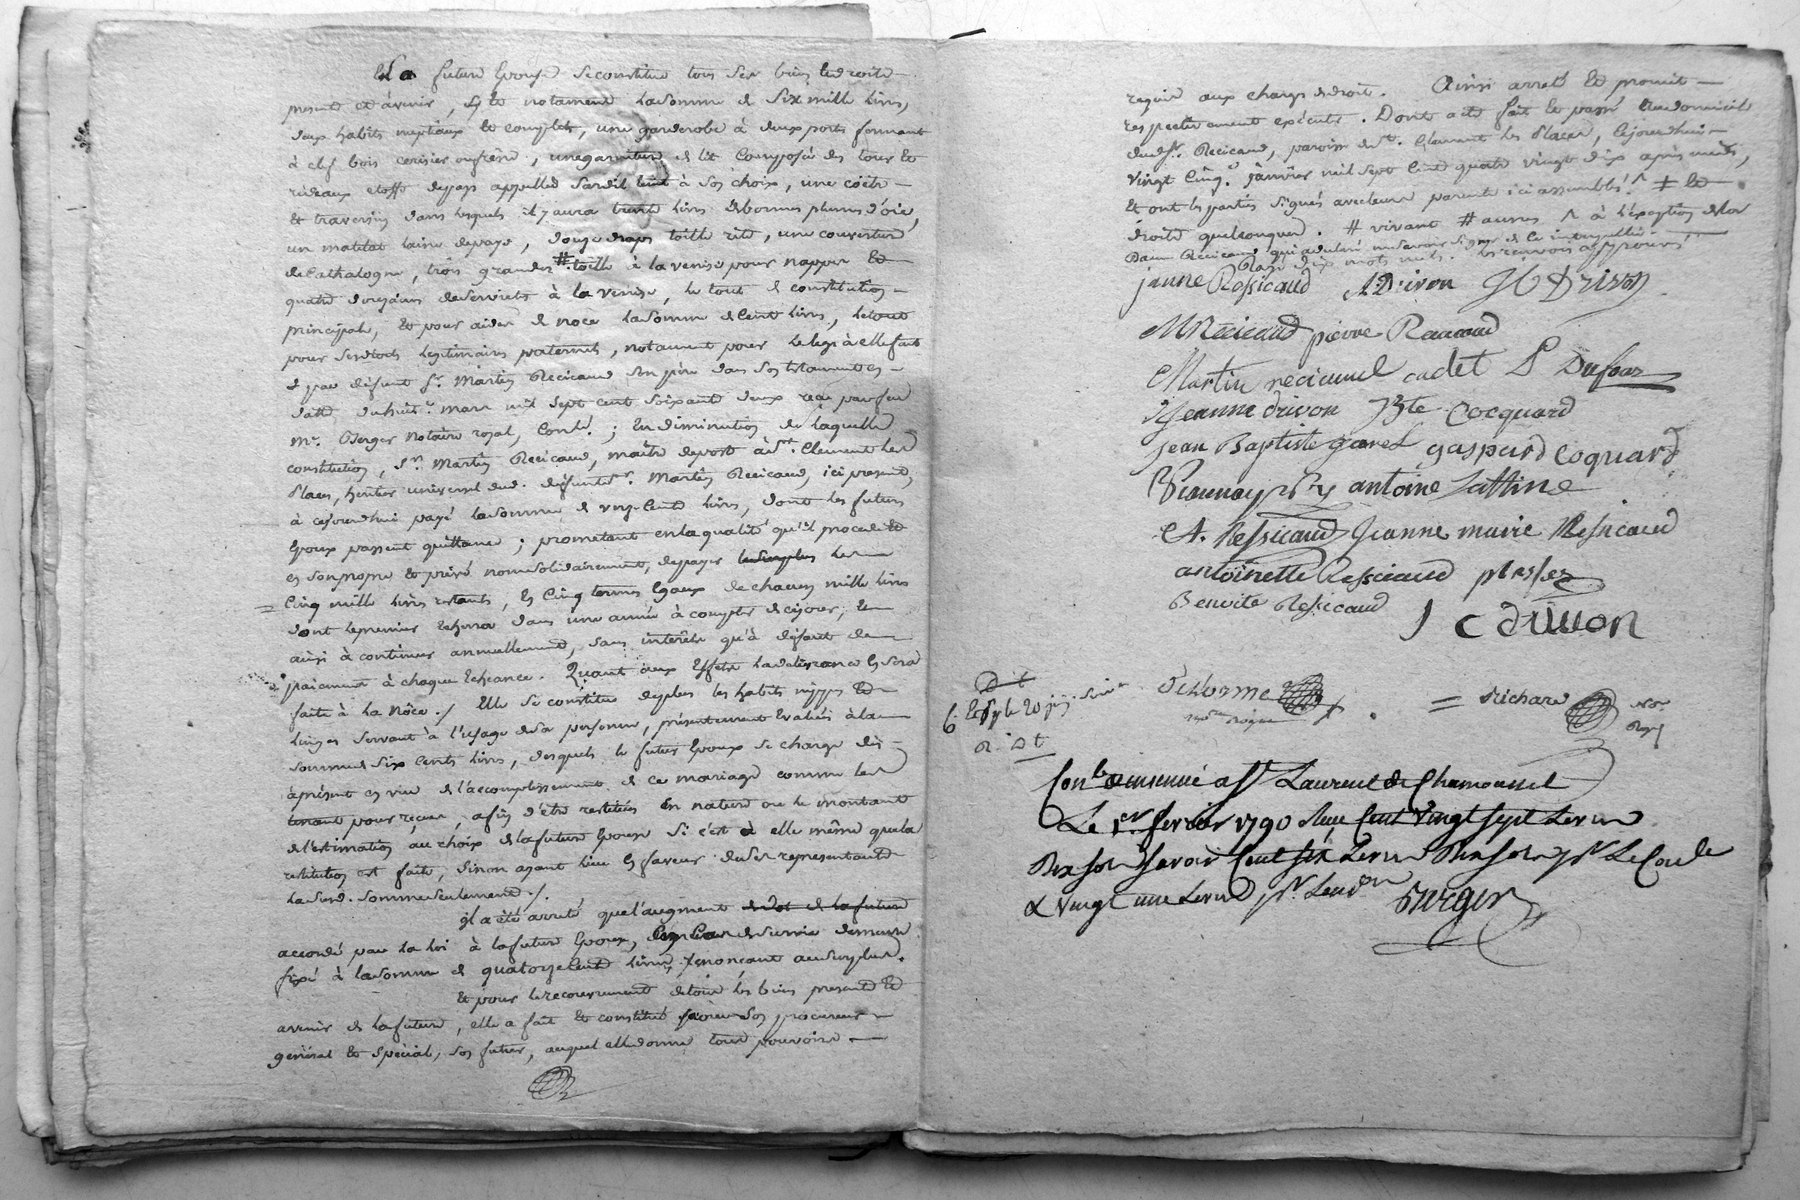 La future Epouse se constitue tous ses biens et droits
present et àvenir, et notament la somme de Six mille livres,
deux habits nuptiaux et complets, une garderobe à deux portes fermant
à clef bois cerisier ou frêne, une garniture de lit Composée des tours et
rideaux etoffe du pays appellée à son choix, une coëtre
et traversin dans lesquels il y aura trente livres de bonnes plumes d'oie,
un matelat laine du pays, douze draps toille rite, une couverture
de Cathalogne, trois grandes # toille à la venise pour nappes et
quatre douzaines de serviette à la venise, le tout de constitution
principale, et pour aider de noce la somme de Cent livres, le tout
pour ses droits legitimaires paternels, notament pour le legs à elle fait
par defunt Sr. Martin Recicaud son père dans son testament en
datte du huit mars mil sept cent soixante deux reçu par feu
Mr. Berger notaire royal, Conlé.; En diminution de laquelle
constitution, Sr. Martin Recicaud, maître de poste à St. Clement les
Places, heritier universel dud. defunt Sr. Martin Recicaud, ici present,
à cejourdhui payé la somme de Cents livres, dont les futurs
Epoux passent quittance; prometant en la qualité qu'il procede et
en son propre et privé nom solidairement, de payer les
Cinq mille livres restants, En Cinq termes Egaux de chacun mille livres
dont le premier echerra dans une année à compter de cejour, et
ainsi à continuer annuellement, sans interêts qu'à defaut de
paiement à chaque Echeance. Quant aux Effets la délivrance En sera
faite à la Nôce ./ Elle se constitue de plus les habits nippes et
linges servant à l'usage de sa personne, présentement Evalués à la
somme de Six Cents livres, desquels le futur Epoux se charge dès
àprésent en vüe de l'accomplissement de ce mariage comme les
tenant pour reçus, afin d'être restitués En nature ou le montant
de l'estimation au choix de la future Epouse Si c'est à elle même que la
restitution est faite, sinon ayant lieu En faveur de ses representants
lad. somme seulement ./.
il a été arreté que l'augment de dot de la future
accordé par la loi à la future Epouse, En Cas de survie demeure
fixé à la somme de quatorze Cents livres, renonçant au surplus.
Et pour le recouvrement de tous les biens present et
avenir de la future, elle a fait et constitué pour son procureur
général et spécial, son futur, auquel elle donne tout pouvoir
requis aux charges de droit. Ainsi arreté et promit
respectivement exécuté. Dont acte fait et passé au domicile
dud. Sr. Recicaud, paroisse de St. Clement les Places, cejourdhui
vingt Cinq. janvier mil sept Cent quatre vingt dix après midi,
Et ont les parties signés avec leurs parents ici assemblés ‡ et
droits quelconques. # vivant # aunes à l'exception de la
Dame Recicaud qui a declaré ne savoir signer de ce interpellée
Rayé dix mots nuls. les renvois approuvés
janne Ressicaud A Drivon JC Drivon
M Recicaud pierre Recicaud
Martin recicaud cadet P Dufour
Jeanne drivon Bte Cocquard
jean Baptiste garel gaspard Coquard
antoine Lattine
A. Ressicaud Jeanne marie Ressicaud
antoinette Ressicaud
Benoite Ressicaud J C drivon
Delorme
= Richard Nore
Royl
Conle. insinué a St Laurent de Chamousset
Le 1er. fevrier 1790 Reçu Cent Vingt sept Livres
Dix sols savoir Cent six Livres Dix sols pr. Le Conle
& Vingt une Livres pr. Linson Berger